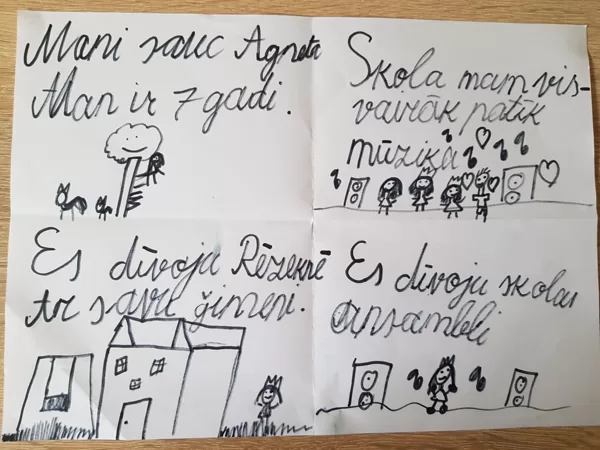 Mani sauc Agneta
Man ir 7 gadi.
Skola mam vis-
vairāk patīk
mūzika
Es dīvoju Rēzeknē
Ar savu ģimeni.
Es dīvoju skolas
ansamblī